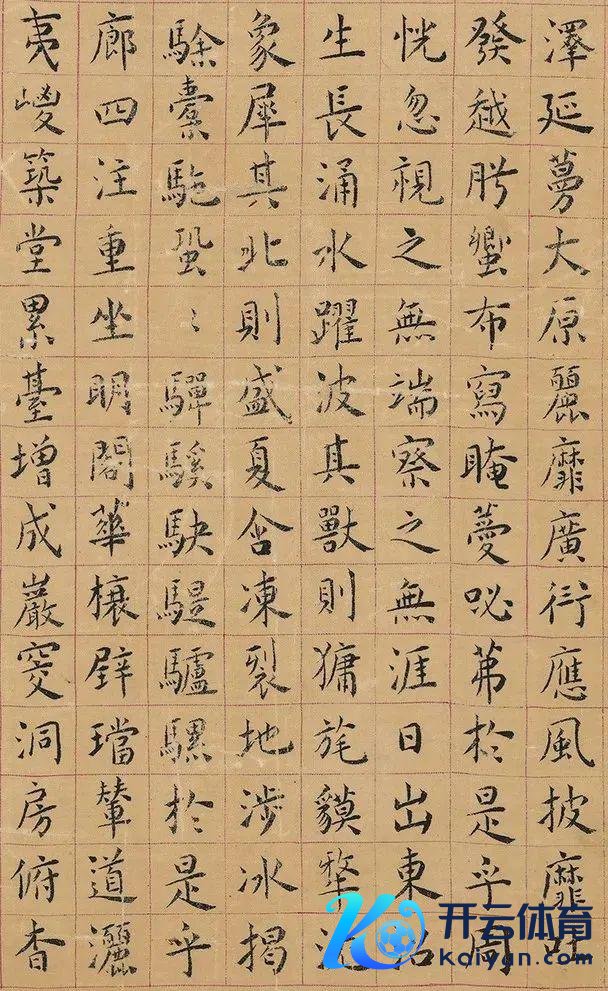 澤延蔓大原麗靡廣衍應風披靡吐
發越肸蠁布寫晻薆咇茀於是乎周
恍忽視之無端察之無涯日出東沼
生長涌水躍波其獸則㺎旄貘犛沈
象犀其北則盛夏含凍裂地涉冰揭
駼橐駞蛩〻驒騱駃騠驢騾於是乎
廊四注重坐明閣華榱璧璫輦道灑
夷嵕築堂累臺增成巖窔洞房俯杳
开云体育
kaiyun.com